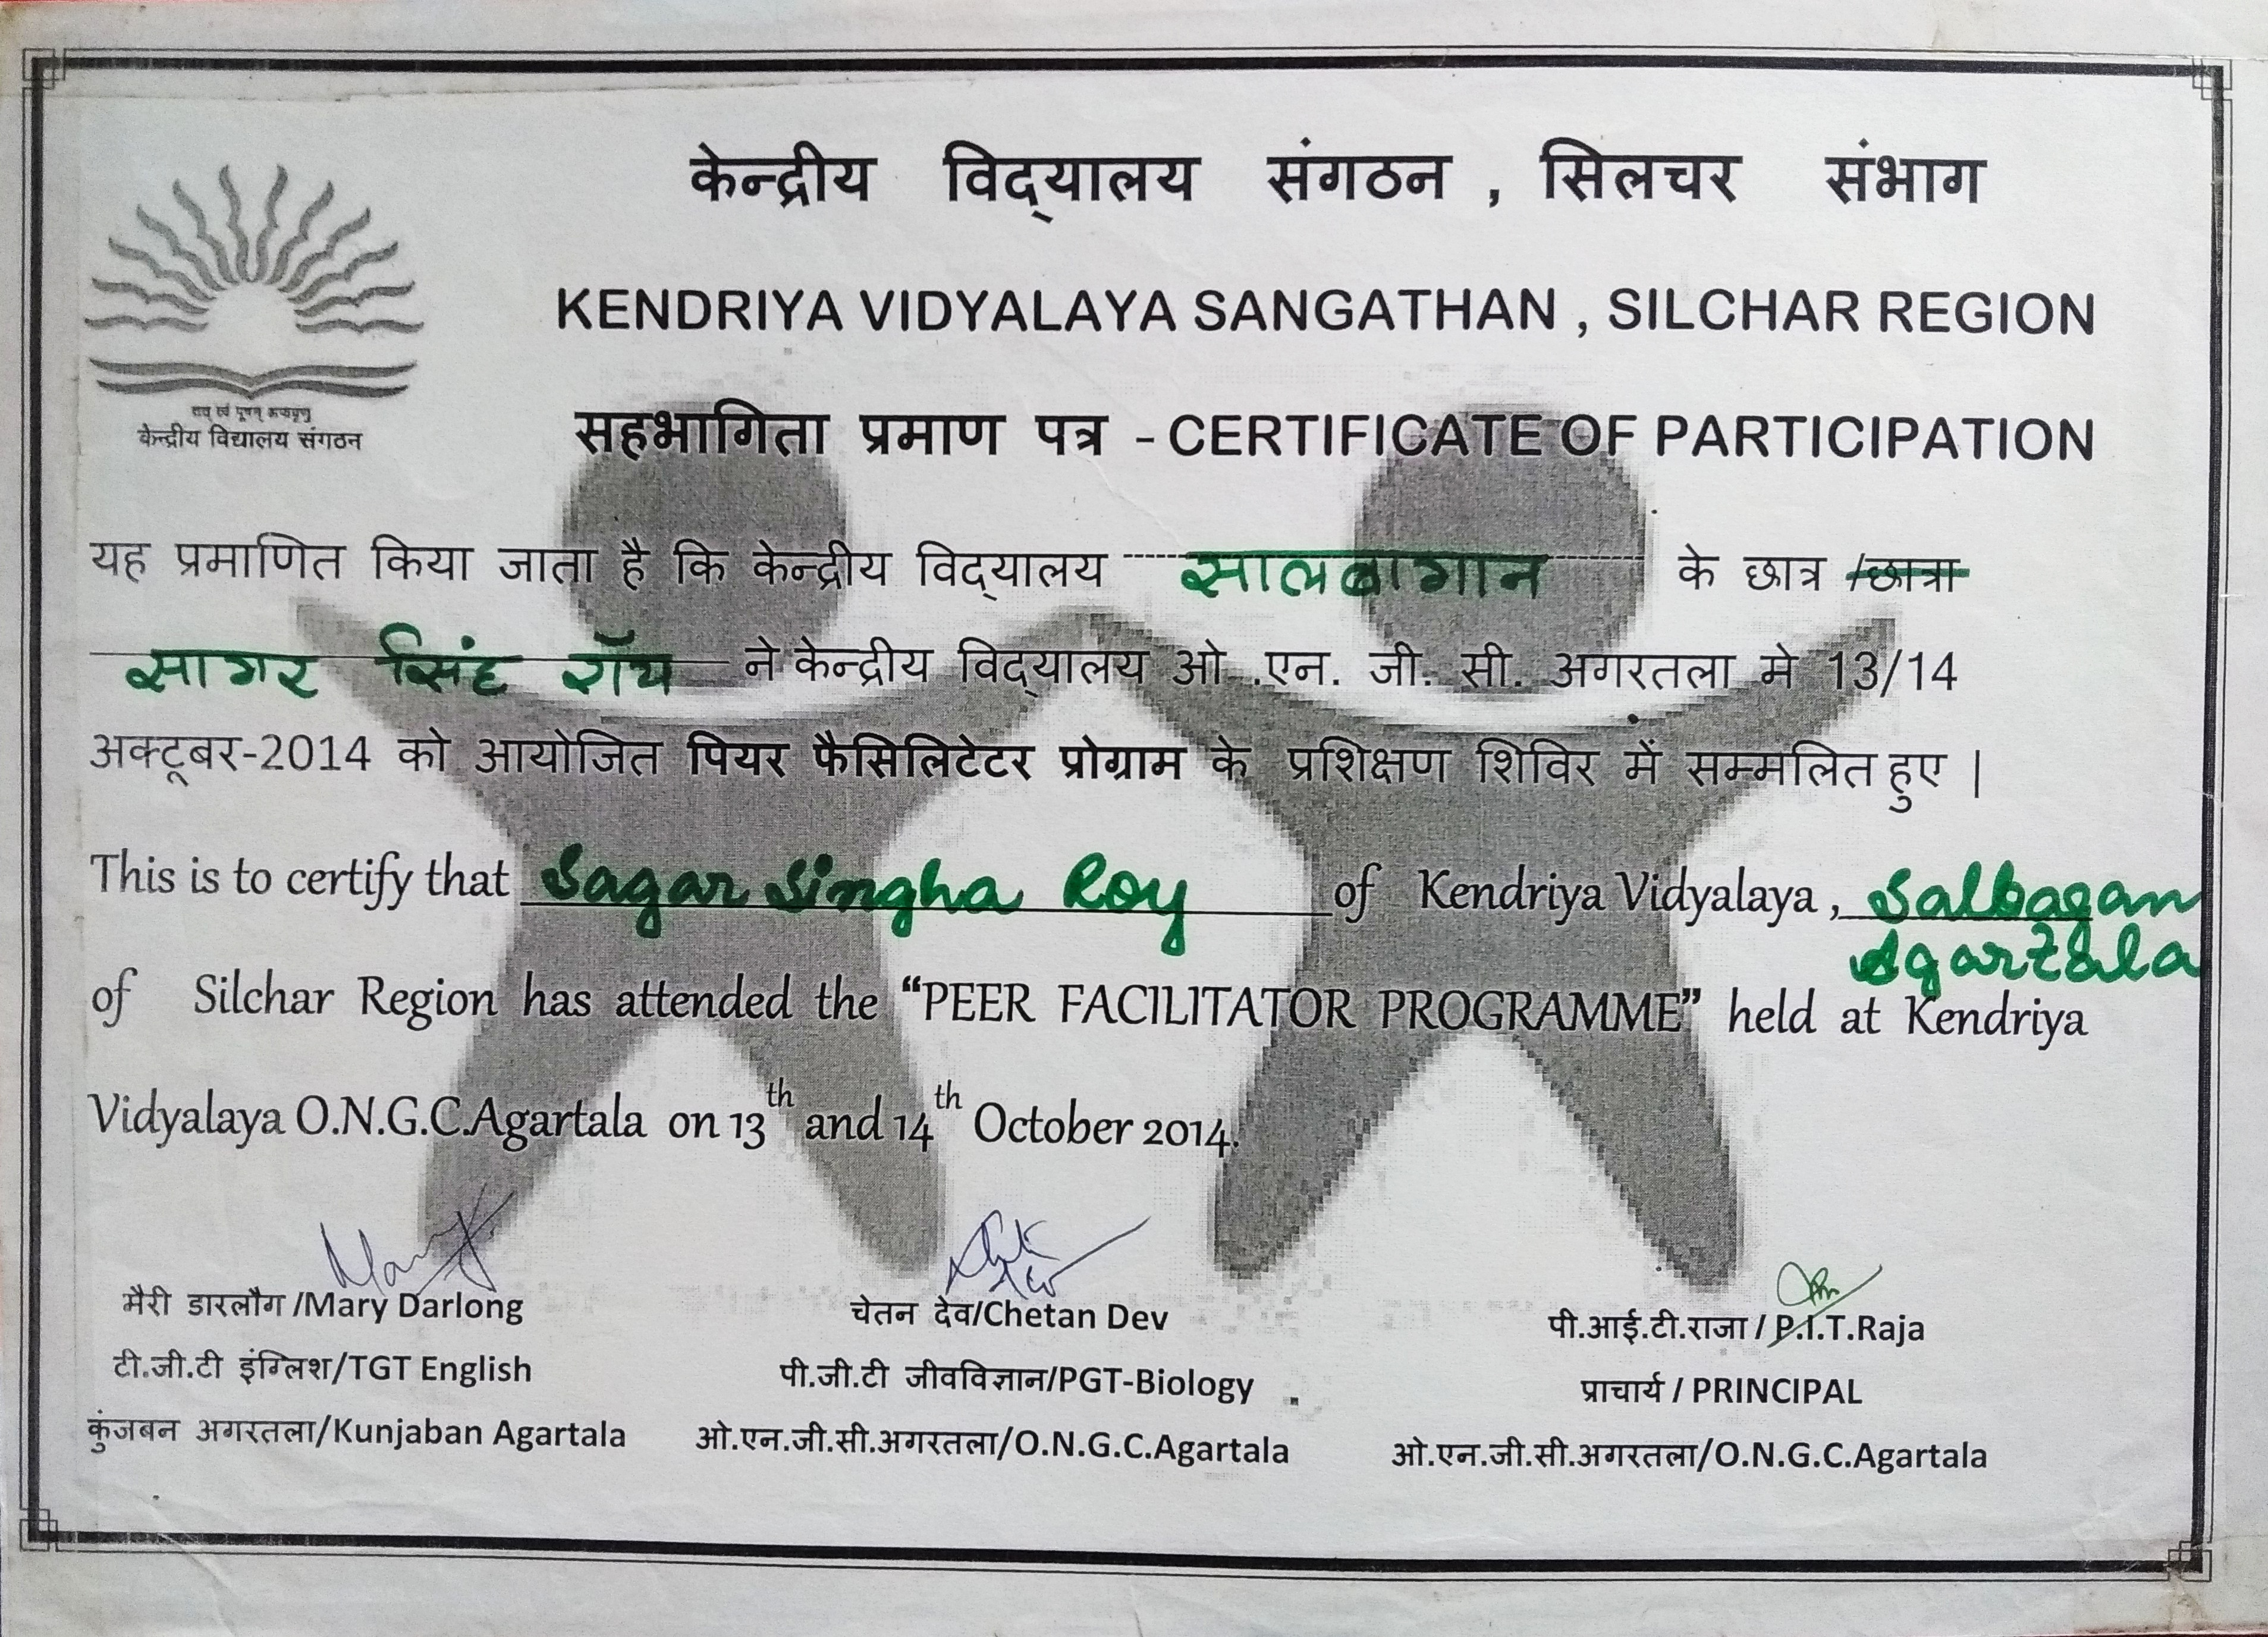 केन्द्रीय विद्यालय संगठन , सिलचर संभाग
KENDRIYA VIDYALAYA SANGATHAN , SILCHAR REGION
केन्द्रीय विद्यालय संगठन
सहभागिता प्रमाण पत्र - CERTIFICATE OF PARTICIPATION
यह प्रमाणित किया जाता है कि केन्द्रीय विद्यालय सालबागान के छात्र /छात्रा
सागर सिंह रॉय ने केन्द्रीय विद्यालय ओ .एन. जी. सी. अगरतला मे 13/14
अक्टूबर-2014 को आयोजित पियर फैसिलिटेटर प्रोग्राम के प्रशिक्षण शिविर में सम्मलित हुए |
This is to certify that Sagar Singha Roy of Kendriya Vidyalaya , Salbagan
Agartala
of Silchar Region has attended the “PEER FACILITATOR PROGRAMME” held at Kendriya
Vidyalaya O.N.G.C.Agartala on 13th and 14th October 2014.
मैरी डारलौग /Mary Darlong
टी.जी.टी इंग्लिश/TGT English
कुंजबन अगरतला/Kunjaban Agartala
चेतन देव/Chetan Dev
पी.जी.टी जीवविज्ञान/PGT-Biology
ओ.एन.जी.सी.अगरतला/O.N.G.C.Agartala
पी.आई.टी.राजा / P.I.T.Raja
प्राचार्य / PRINCIPAL
ओ.एन.जी.सी.अगरतला/O.N.G.C.Agartala